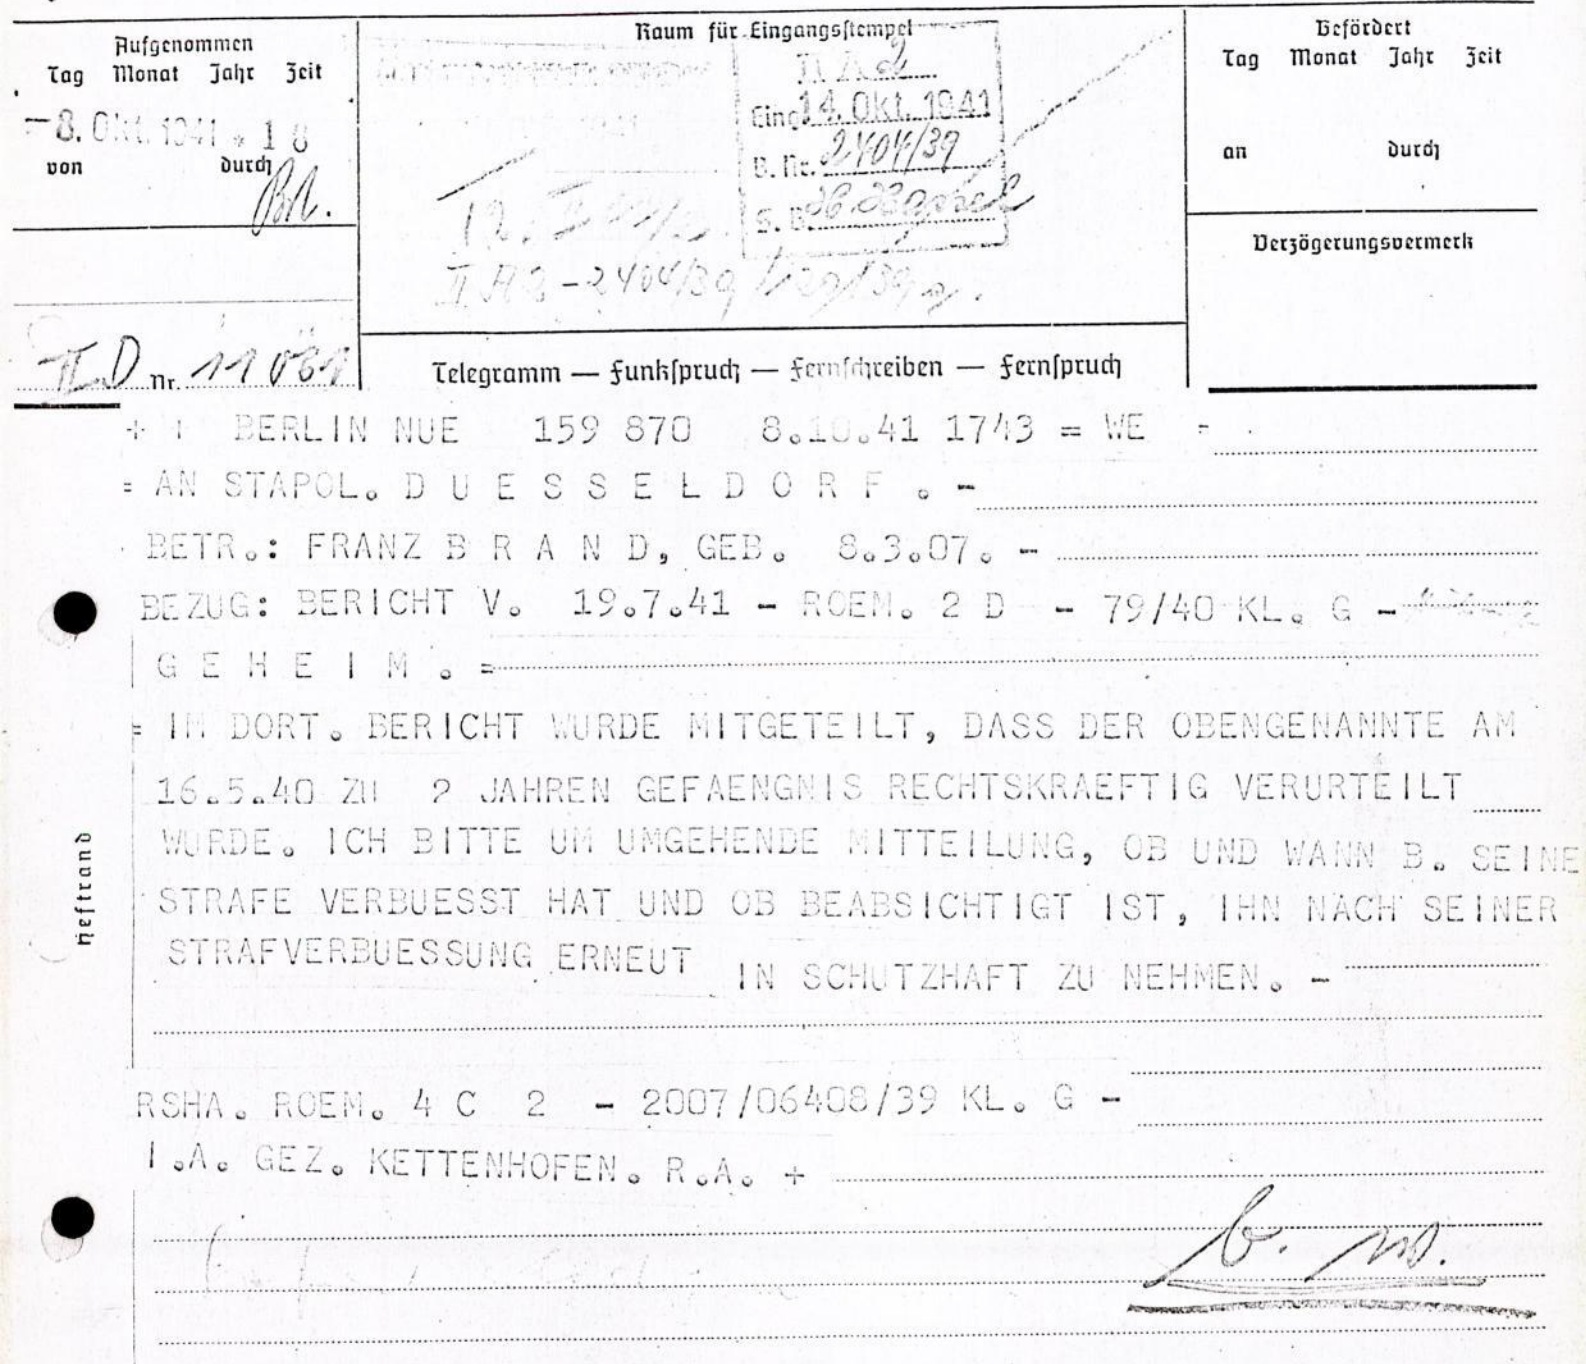 Aufgenommen
Tag Monat Jahr Zeit
-8. Okt. 1941 * 18
von durch
Raum für Eingangsstempel
II A 2
Eing. 14. Okt. 1941
B. Nr. 2404/39
S. B.
II A 2 - 2404/39
Befördert
Tag Monat Jahr Zeit
an durch
Verzögerungsvermerk
II D Nr. 11 031
Telegramm — Funkspruch — Fernschreiben — Fernspruch
+ + BERLIN NUE 159 870 8.10.41 1743 = WE =
= AN STAPOL. D U E S S E L D O R F . -
BETR.: FRANZ B R A N D, GEB. 8.3.07. -
BEZUG: BERICHT V. 19.7.41 - ROEM. 2 D - 79/40 KL. G -
G E H E I M . =
= IM DORT. BERICHT WURDE MITGETEILT, DASS DER OBENGENANNTE AM
16.5.40 ZU 2 JAHREN GEFAENGNIS RECHTSKRAEFTIG VERURTEILT
WURDE. ICH BITTE UM UMGEHENDE MITTEILUNG, OB UND WANN B. SEINE
STRAFE VERBUESST HAT UND OB BEABSICHTIGT IST, IHN NACH SEINER
STRAFVERBUESSUNG ERNEUT IN SCHUTZHAFT ZU NEHMEN. -
RSHA. ROEM. 4 C 2 - 2007/06408/39 KL. G -
I.A. GEZ. KETTENHOFEN. R.A. +
b. w.
Heftrand